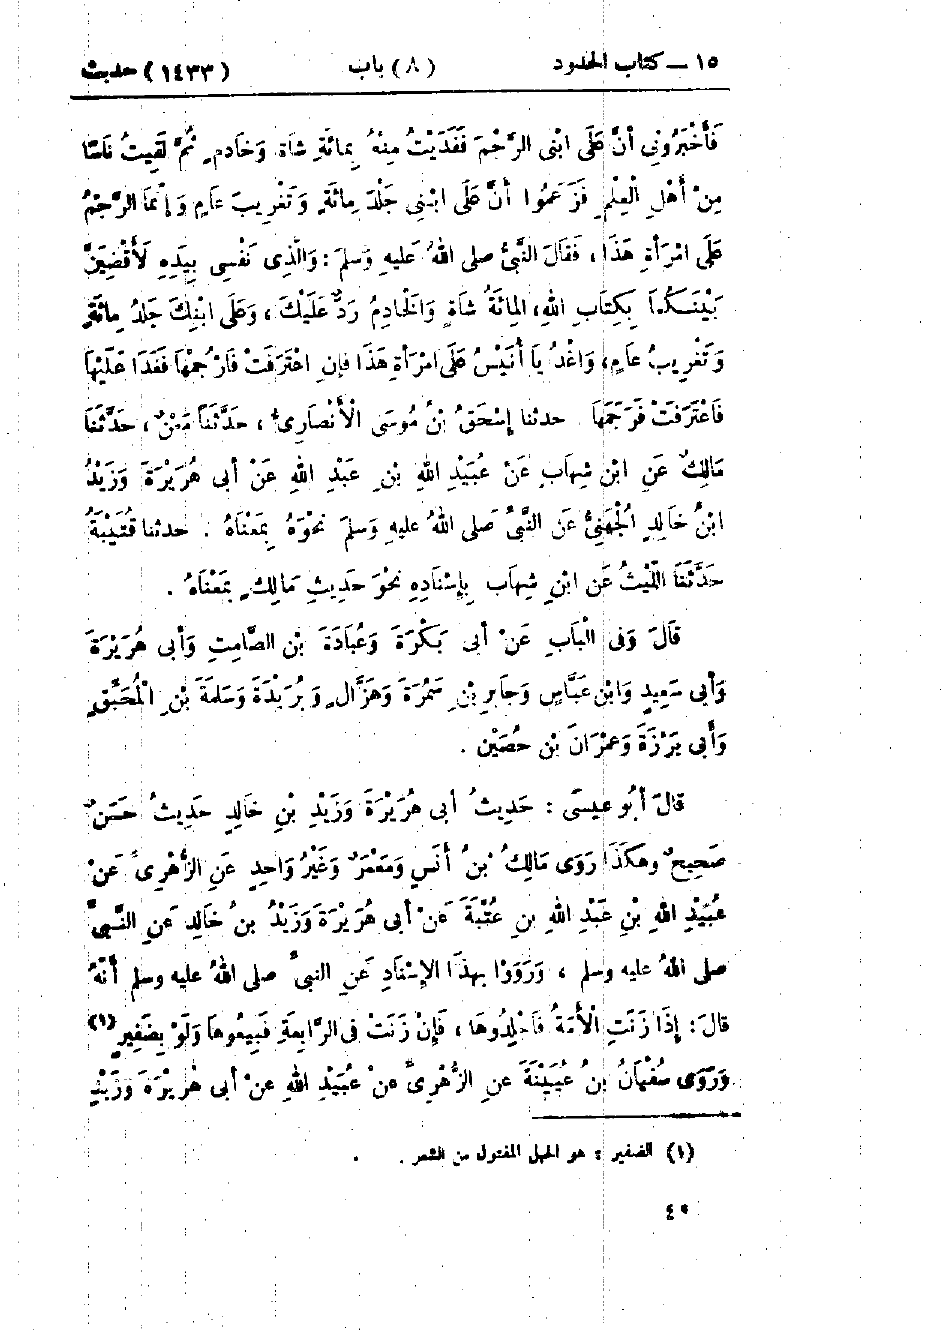 ١٥ – كتاب الحدود (٨) باب (١٤٣٣) حديث
فَأَخْبَرُونِى أَنَّ عَلَى ابْنِى الرَّجْمَ فَفَدَيْتُ مِنْهُ بِمائَةِ شاَة وَخَادمٍ. ثُمَّ لَقِيتُ نَاسًا
مِنْ أَهْلِ الْعِلْمِ فَزَعَمُوا أَنَّ عَلَى ابْنِى جَلْدَ مِائَةٍ وَتَغْرِيبَ عَامٍ وَإِنَّمَا الرَّجْمُ
عَلَى امْرَأَةِ هَذَا ، فَقَالَ النَّبِىُّ صلى اللهُ عَليهِ وَسَلمَ : وَالَّذِى نَفْسِى بِيَدِهِ لَأَقْضِيَنَّ
بَيْنَكُمَا بِكِتَابِ اللهِ، المِائَةُ شَاةٍ وَالْخَادِمُ رَدٌّ عَلَيْكَ ، وَعَلَى ابْنِكَ جَلدُ مِائَةٍ
وَتَغْرِيبُ عَامٍ، وَاغْدُ يَا أُنَيْسُ عَلَى امْرَأَةِ هَذَا فإِنِ اعْتَرَفَتْ فَارْجُمْهَا فَغَدَا عَلَيْهَا
فَاعْتَرَفَتْ فَرَجَمَهَا . حدثنا إِسْحَقُ بْنُ مُوسَى الْأَنْصَارِىُّ ، حَدَّثَنَا مَعْنٌ ، حَدَّثَنَا
مَالِكٌ عَنِ ابْنِ شِهَابٍ عَنْ عُبَيْدِ اللهِ بْنِ عَبْدِ اللهِ عَنْ أَبِى هُرَيْرَةَ وَزَيْدُ
ابْنُ خَالِدٍ الْجُهَنِىُّ عَنِ النَّبِىِّ صَلى اللهُ عليهِ وَسَلَّمَ نَحْوَهُ بِمَعْنَاهُ . حدثنا قُتَيْبَةُ
حَدَّثَنَا اللَّيْثُ عَنِ ابْنِ شِهَاب بِإِسْنَادِهِ نَحْوَ حَدِيثِ مَالِكٍ. بِمَعْنَاهُ .
قَالَ وَفى الْبَابِ عَنْ أبى بَكْرَةَ وَعُبَادَةَ بْنِ الصَّامِتِ وَأَبى هُرَيْرَةَ
وَأَبى سَعِيدٍ وَابْنِ عَبَّاسٍ وَجَابِرِ بْنِ سَمُرَةَ وَهَزَّالٍ وَبُرَيْدَةَ وَسَلمَةَ بْنِ الْمُحَبَّقِ
وَأَبى بَرْزَةَ وَعِمْرَانَ بْنِ حُصَيْنٍ .
قَالَ أَبُو عيسَى : حَدِيثُ أَبى هُرَيْرَةَ وَزَيْدِ بْنِ خَالِدٍ حَدِيثٌ حَسَنٌ
صَحِيحٌ وهَكَذَا رَوَى مَالِكُ بْنُ أَنَسٍ وَمَعْمَرٌ وَغَيْرُ وَاحِدٍ عَنِ الزُّهْرِىِّ عَنْ
عُبَيْدِ اللهِ بْنِ عَبْدِ اللهِ بنِ عُتْبَةَ عَنْ أَبى هُرَيْرَةَ وَزَيْدُ بنُ خَالِدٍ عَنِ النَّبِىِّ
صلى اللهُ عليه وسلم ، وَرَوَوْا بهذَا الإِسْنَادِ عَنِ النبىِّ صلى اللهُ عليه وسلم أَنَّهُ
قالَ : إِذَا زَنَتِ الْأَمَةُ فَاجْلِدُوهَا ، فَإِنْ زَنَتْ فى الرَّابِعَةِ فَبِيعُوهَا وَلَوْ بِضَفِيرٍ(١)
وَرَوَى سُفْيَانُ بنُ عُيَيْنَةَ عنِ الزُّهْرِىِّ عنْ عُبَيْدِ اللهِ عنْ أَبى هُرَيْرَةَ وَزَيْدِ
(١) الضفير : هو الحبل المفتول من الشعر .
٤٠